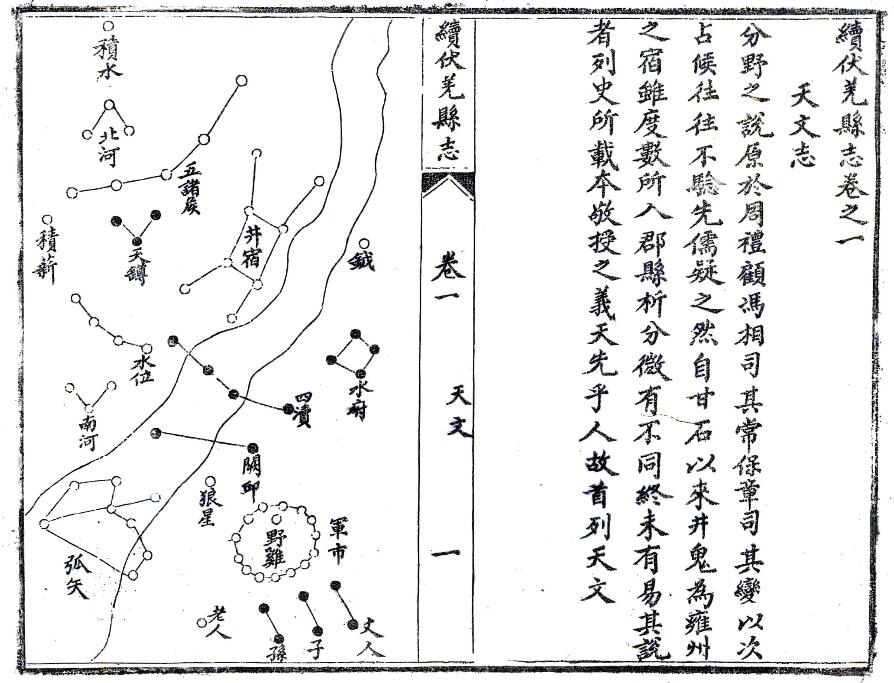 續伏羌縣志卷之一
天文志
分野之說原於周禮顧馮相司其常保章司其變以次
占候往往不驗先儒疑之然自甘石以來井鬼為雍州
之宿雖度數所入郡縣析分微有不同終未有易其說
者列史所載本敬授之義天先乎人故首列天文
續伏羌縣志
卷一
天文
一
積水
北河
五諸侯
積薪
天罇
井宿
鉞
水位
水府
四瀆
南河
闕邱
狼星
軍市
野雞
弧矢
老人
孫
子
丈人